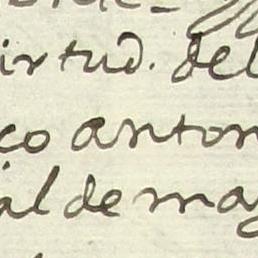 irtud. del
co anton
al de mag